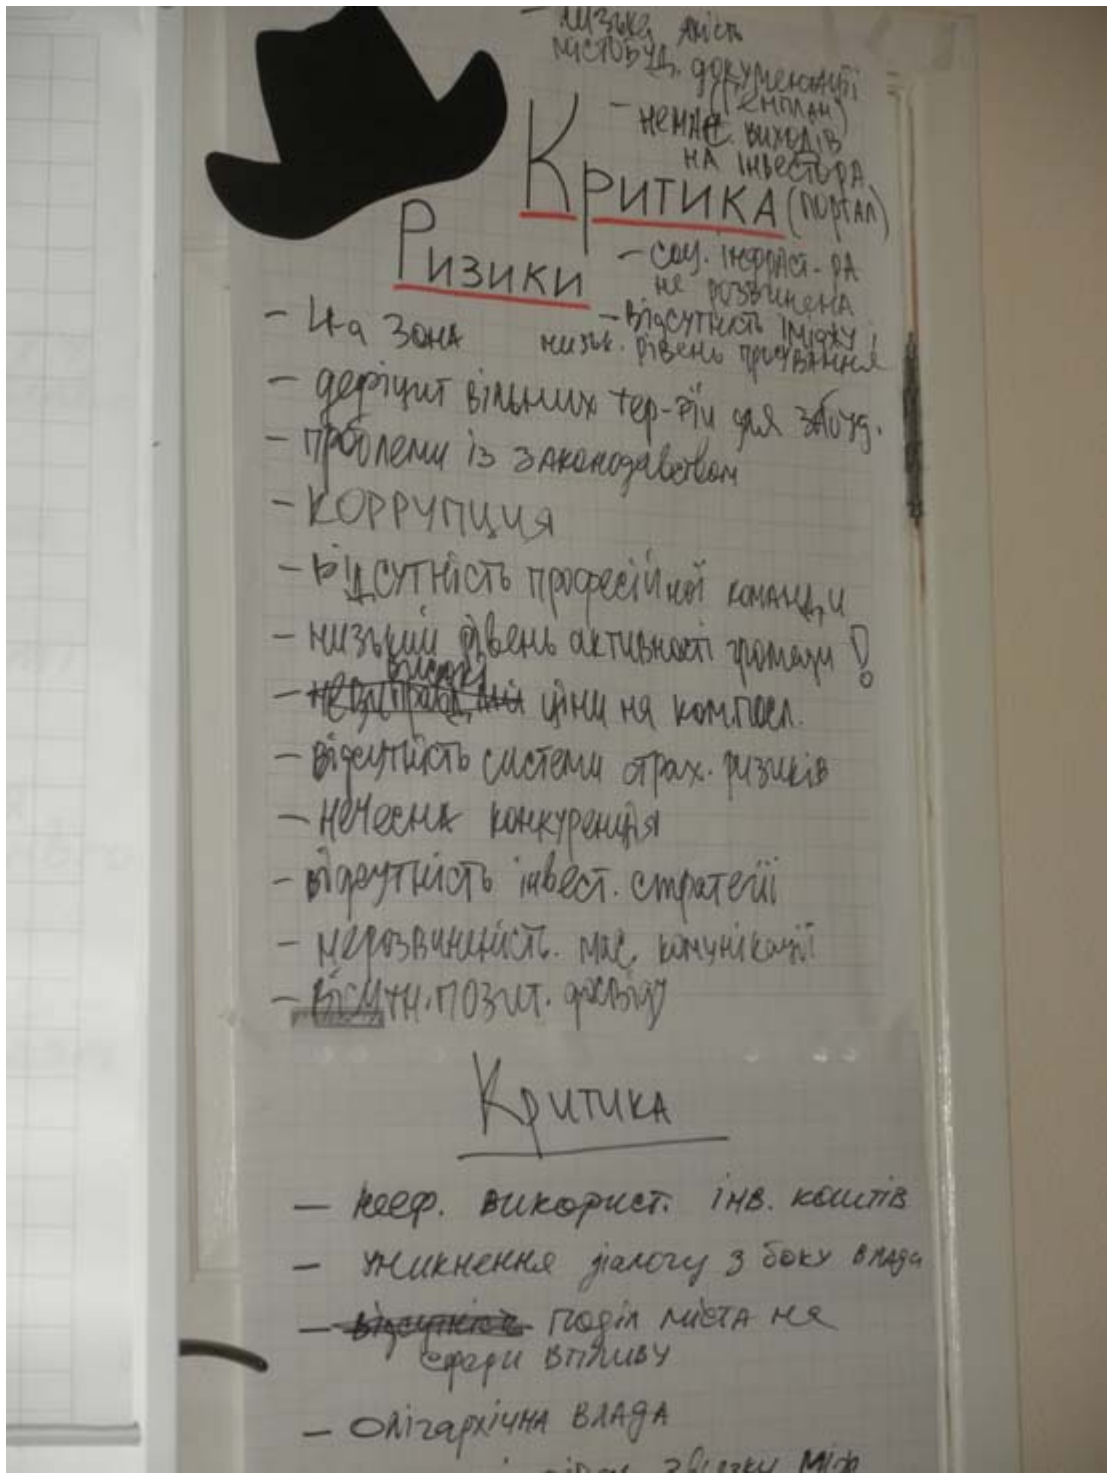 - низька якість
містобуд. документації
(Генплан)
- немає виходів
на інвестора
(портал)
Критика
Ризики
- соц. інфраст-ра
не розвинена
- відсутність іміджу і
низьк. рівень просування
- 4а зона
- дефіцит вільних тер-рій для забуд.
- проблеми із законодавством
- коррупция
- відсутність професійної команди
- низький рівень активності громади !
- високі ціни на компл.
- відсутність системи страх. ризиків
- нечесна конкуренція
- відсутність інвест. стратегії
- нерозвиненість. мас. комунікації
- відсутн. позит. досвіду
Критика
- нееф. використ. інв. коштів
- уникнення діалогу з боку влади
- поділ міста на
сфери впливу
- олігархічна влада
звязку між